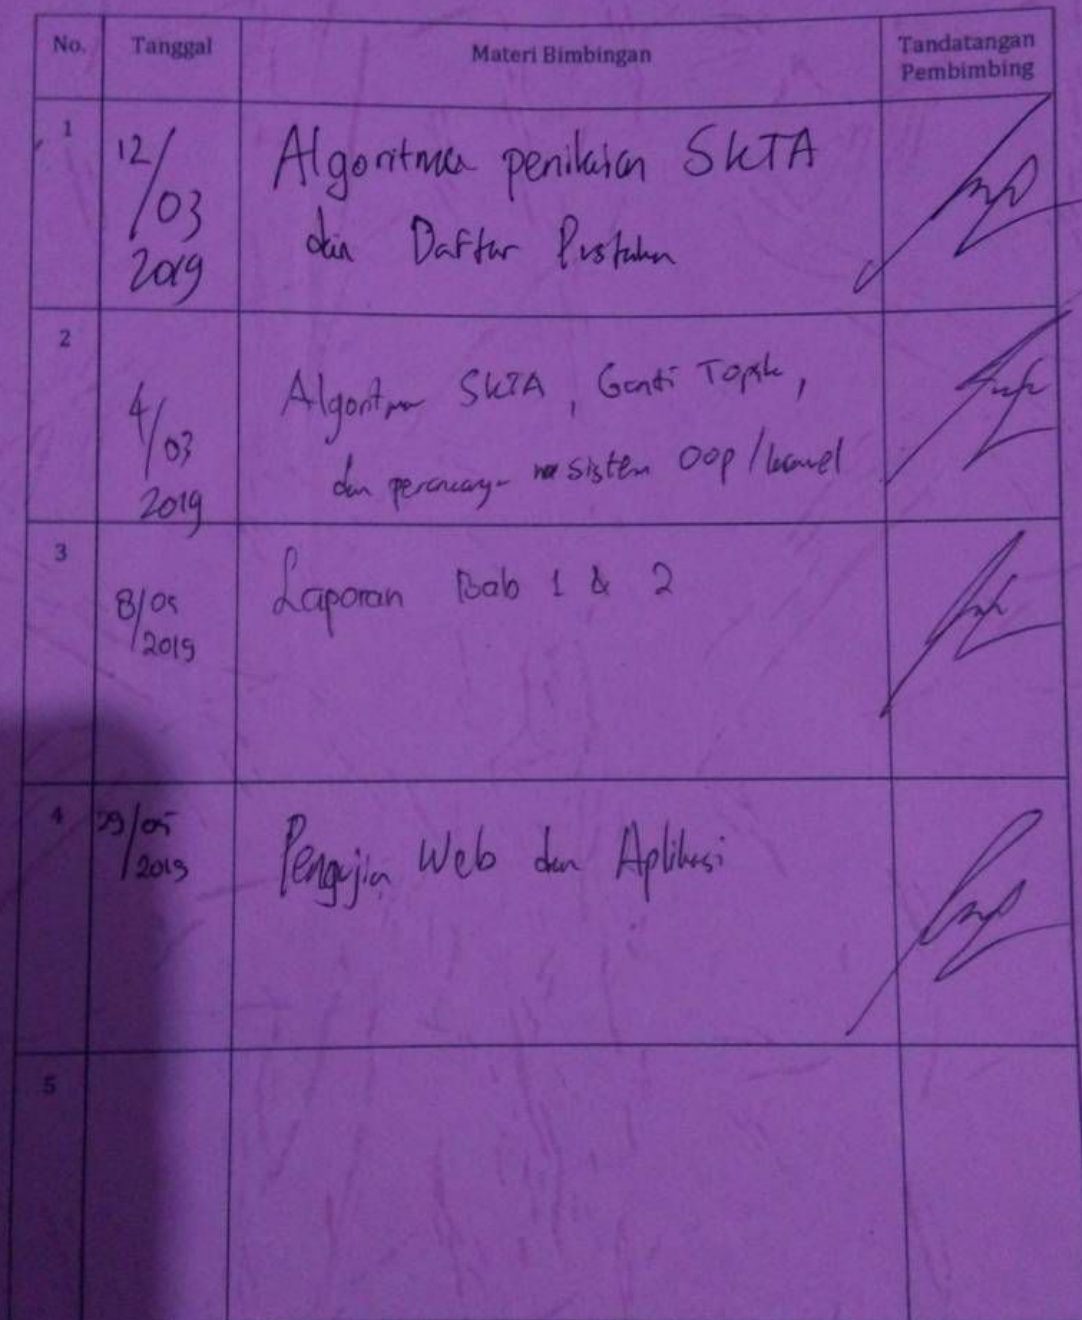 No. Tanggal Materi Bimbingan Tandatangan
Pembimbing
1
12/
/03
2019
Algoritma penilaian SKTA
dan Daftar Pustaka
2
4/
/03
2019
Algoritma SKTA, Ganti Topik,
dan sistem OOP /
3
8/05
/2019
Laporan Bab 1 & 2
4
29/05
/2019
Pengujian Web dan Aplikasi
5